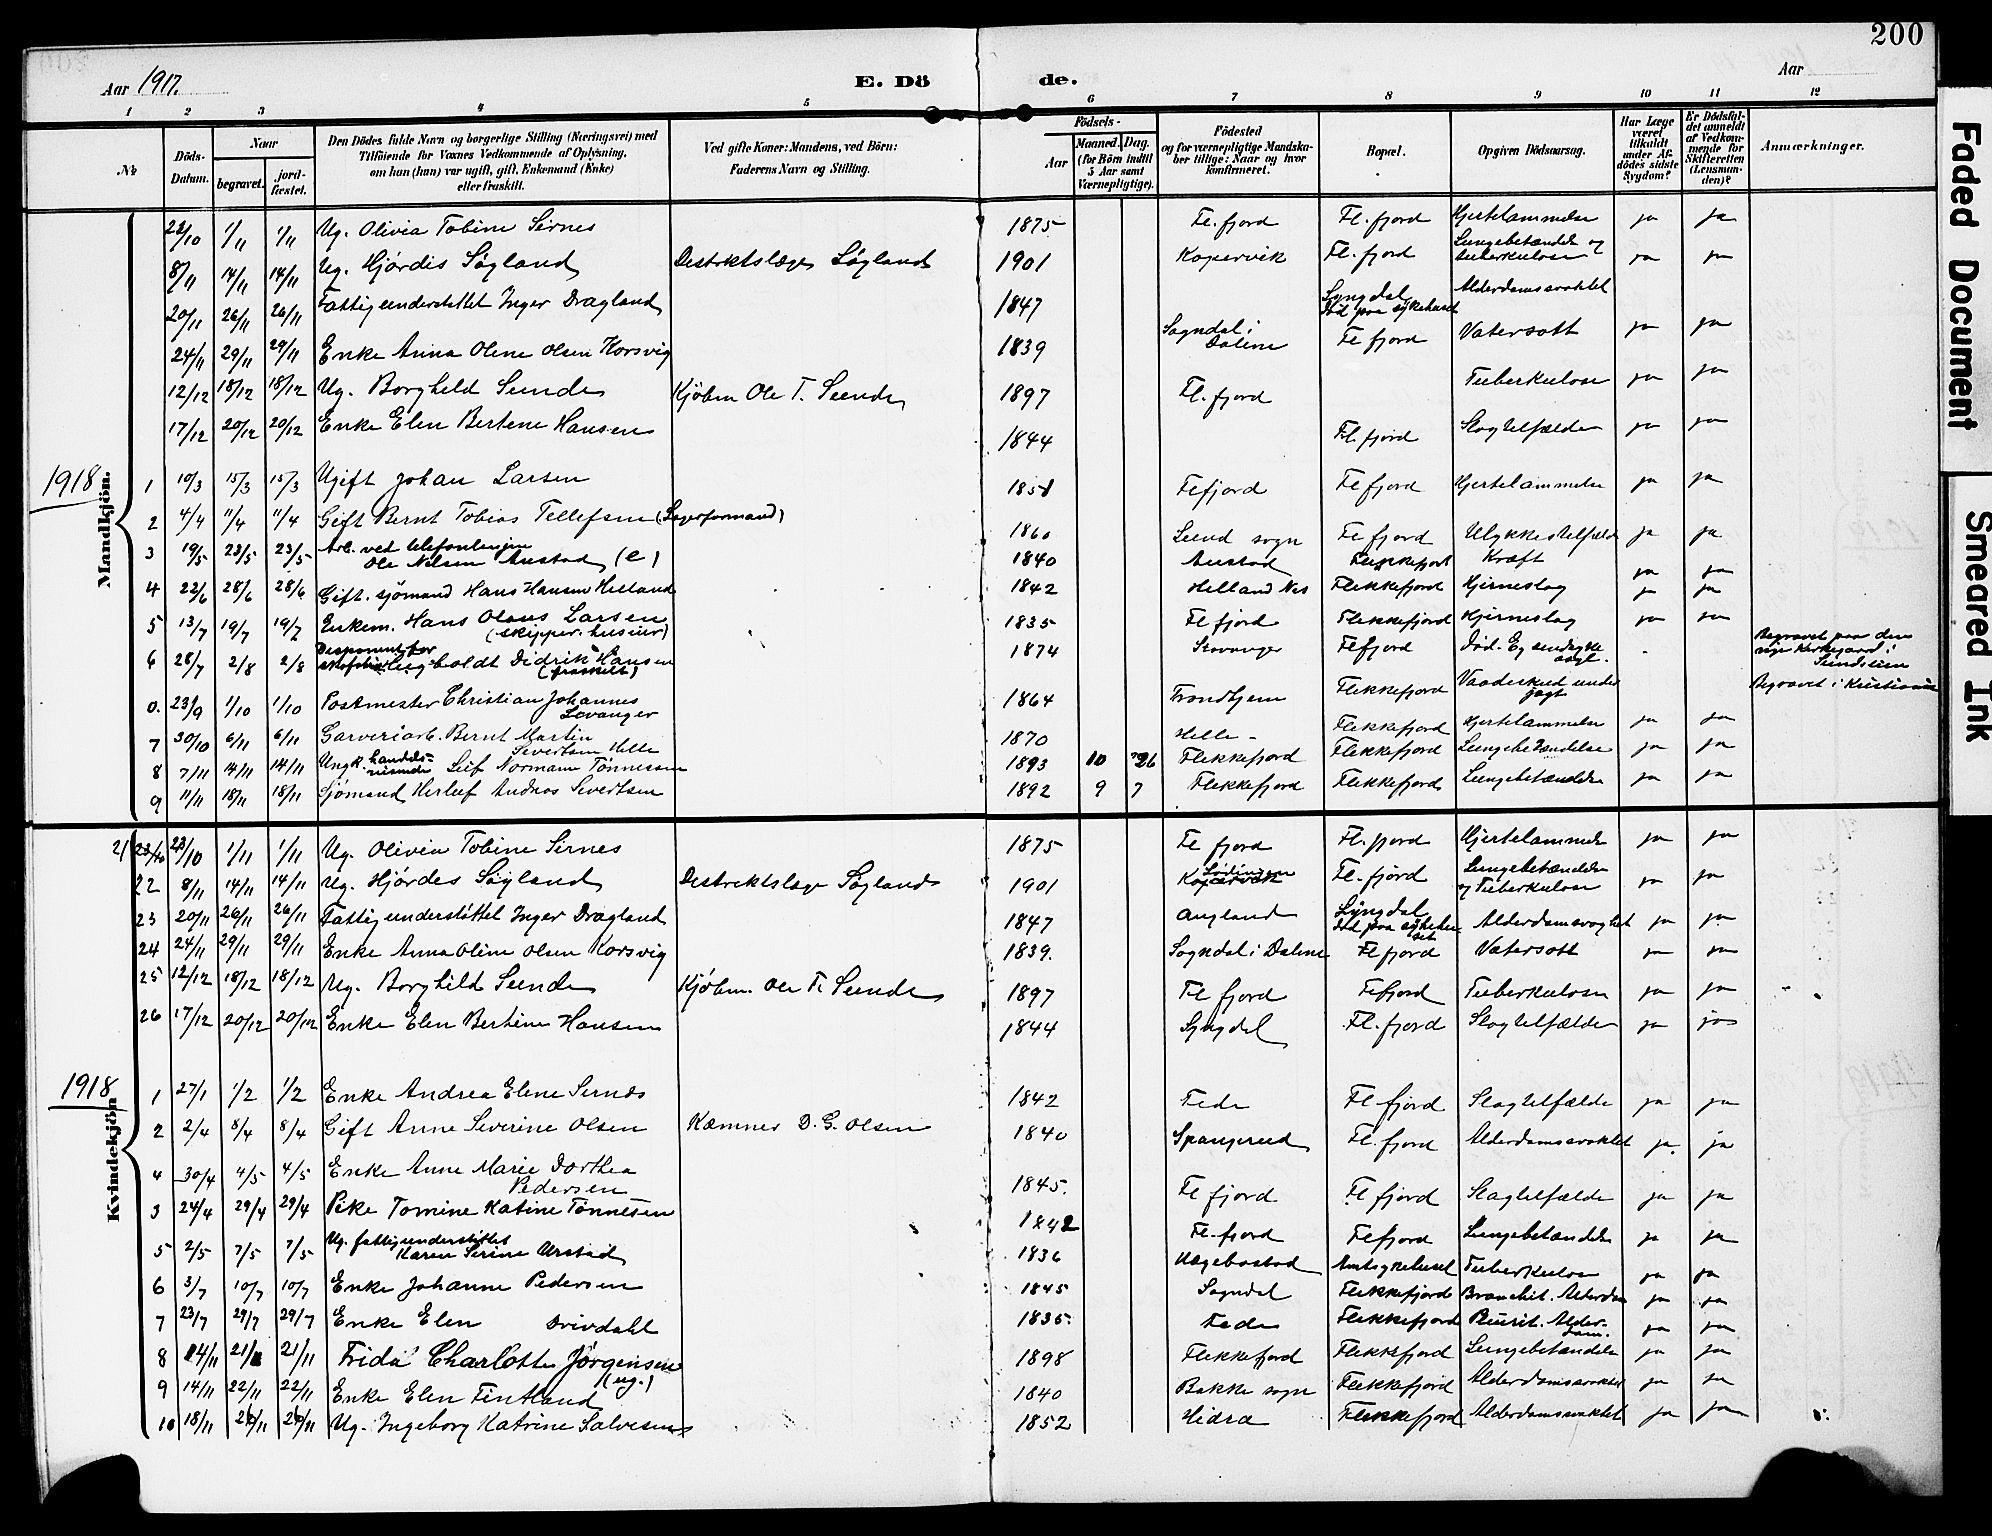 200
Aar 1917.
E. Dö
de.
Aar
1 2 3 4 5 6 7 8 9 10 11 12
№
Döds-Datum.
Naar
begravet.
jord-fæstet.
Den Dödes fulde Navn og borgerlige Stilling (Næringsvei) med
Tilföiende for Voxnes Vedkommende af Oplysning,
om han (hun) var ugift, gift, Enkemand (Enke)
eller fraskilt.
Ved gifte Koner: Mandens, ved Börn:
Faderens Navn og Stilling.
Födsels-
Aar
Maaned. Dag.
(for Börn indtil
5 Aar samt
Værnepligtige).
Födested
og for værnepligtige Mandska-
ber tillige: Naar og hvor
konfirmeret.
Bopæl.
Opgiven Dödsaarsag.
Har Læge
været
tilkaldt
under Af-
dödes sidste
Sygdom?
Er Dödsfal-
det anmeldt
af Vedkom-
mende for
Skifteretten
(Lensman-
den)?
Anmærkninger.
22/10 1/11 1/11 Ug. Olivia Tobine Sirnes 1875 Fl. fjord Fl. fjord Hjertelammelse ja ja
8/11 14/11 14/11 Ug. Hjördis Søyland Distriktslæge Søyland 1901 Kopervik Fl. fjord Lungebetændelse og tuberkulose ja ja
20/11 26/11 26/11 Fattigunderstøttet Inger Dragland 1847 Lyngdal Ind paa sykehuset Alderdomssvakhet
24/11 29/11 29/11 Enke Anna Oline Olsen Korsvig 1839 Sogndal i Dalene Fl fjord Vatersott ja ja
12/12 18/12 18/12 Ug. Borghild Sunde Kjøbm Ole T. Sunde 1897 Fl. fjord Tuberkulose ja ja
17/12 20/12 20/12 Enke Elen Bertine Hansen 1844 Fl. fjord Slagtilfælde ja ja
1918
Mandkjön.
1 10/3 15/3 15/3 Ugift Johan Larsen 1851 Flfjord Fl fjord Hjertelammelse ja ja
2 4/4 11/4 11/4 Gift Bernt Tobias Tellefsen (Lagerformand) 1860 Lund sogn Fl fjord Ulykkestilfælde ja ja
3 19/5 23/5 23/5 Arb. ved telefonlinjen Ole Nilsen Austad (e) 1840 Austad Flekkefjord Kræft ja ja
4 22/6 28/6 28/6 Gift. sjömand Hans Hansen Helland 1842 Helland Nes Flekkefjord Hjerneslag ja ja
5 13/7 19/7 19/7 Enkem. Hans Olaus Larsen (skipper, huseier) 1835 Fl fjord Flekkefjord Hjerneslag ja ja
6 28/7 2/8 2/8 Disponent for skofabrik Lug-holdt Didrik Hansen (fraskilt) 1874 Stavanger Flfjord Død. Ei sendagtl. - Begravet paa den nye Kirkegaard i Sundeien
0. 23/9 1/10 1/10 Postmester Christian Johannes Levanger 1864 Trondhjem Flekkefjord Vaadeskud under jagt Begravet i Kristiania
7 30/10 6/11 6/11 Garveriarb. Bernt Martin Severtsen Helle 1870 Helle - Flekkefjord Hjertelammelse ja ja
8 7/11 14/11 14/11 Ungk. handels-reisende Leif Normann Tönnessen 1893 10 26 Flekkefjord Flekkefjord Lungebetændelse ja ja
9 11/11 18/11 18/11 Sjömand Herleif Andreas Severtsen 1892 9 7 Flekkefjord Flekkefjord Lungebetændelse ja ja
21 23/10 1/11 1/11 Ug. Olivia Tobine Sirnes 1875 Fl fjord Fl. fjord Hjertelammelse ja ja
22 8/11 14/11 14/11 Ug. Hjördes Søyland Destriktslæge Søyland 1901 Kopervik Lødingen Fl. fjord Lungebetændelse og Tuberkulose ja ja
23 20/11 26/11 26/11 Fattigunderstøttet Inger Dragland 1847 Augland Lyngdal Ind paa sykehuset Alderdomsvaghet ja ja
24 24/11 29/11 29/11 Enke Anna Oline Olsen Korsvig 1839. Sogndal i Dalene Fl fjord Vatersott ja ja
25 12/12 18/12 18/12 Ug. Borghild Sunde Kjöbm. Ole T. Sunde 1897 Fl fjord Flfjord Tuberkulose ja ja
26 17/12 20/12 20/12 Enke Elen Bertine Hansen 1844 Lyngdal Fl. fjord Slagtilfælde ja ja
1918
Kvindekjön
1 27/1 1/2 1/2 Enke Andrea Elene Sirnes 1842 Feda Fl fjord Slagtilfælde ja ja
2 2/4 8/4 8/4 Gift Anne Severine Olsen Kæmner D. G. Olsen 1840 Spangereid Fl. fjord Alderdomssvakhet ja ja
4 30/4 4/5 4/5 Enke Anne Marie Dorthea Pedersen 1845. Fl fjord Fl fjord Slagtilfælde ja ja
3 24/4 29/4 29/4 Pike Tomine Katine Tönnesen 1842 Fl. fjord Flfjord Lungebetændelse ja ja
5 2/5 7/5 7/5 Ug. fattigunderstöttet Karen Serine Urstad 1836 Hægebostad Amtsykehuset Tuberkulose ja ja
6 3/7 10/7 10/7 Enke Johanne Pedersen 1845 Sogndal Flekkefjord Bronchit. Alderdom ja ja
7 23/7 29/7 29/7 Enke Elen Drivdahl 1835. Feda Flekkefjord Plurit. Alderdom. ja ja
8 14/11 21/11 21/11 Frida Charlotte Jörgensen (ug.) 1898 Flekkefjord Flekkefjord Lungebetændelse ja ja
9 14/11 22/11 22/11 Enke Elen Fintland 1840 Bakke sogn Flekkefjord Alderdomssvakhet ja ja
10 18/11 26/11 26/11 Ug. Ingeborg Katrine Salvesen 1852 Hidra Flekkefjord Alderdomssvakhet ja ja
Faded Document
Smeared Ink